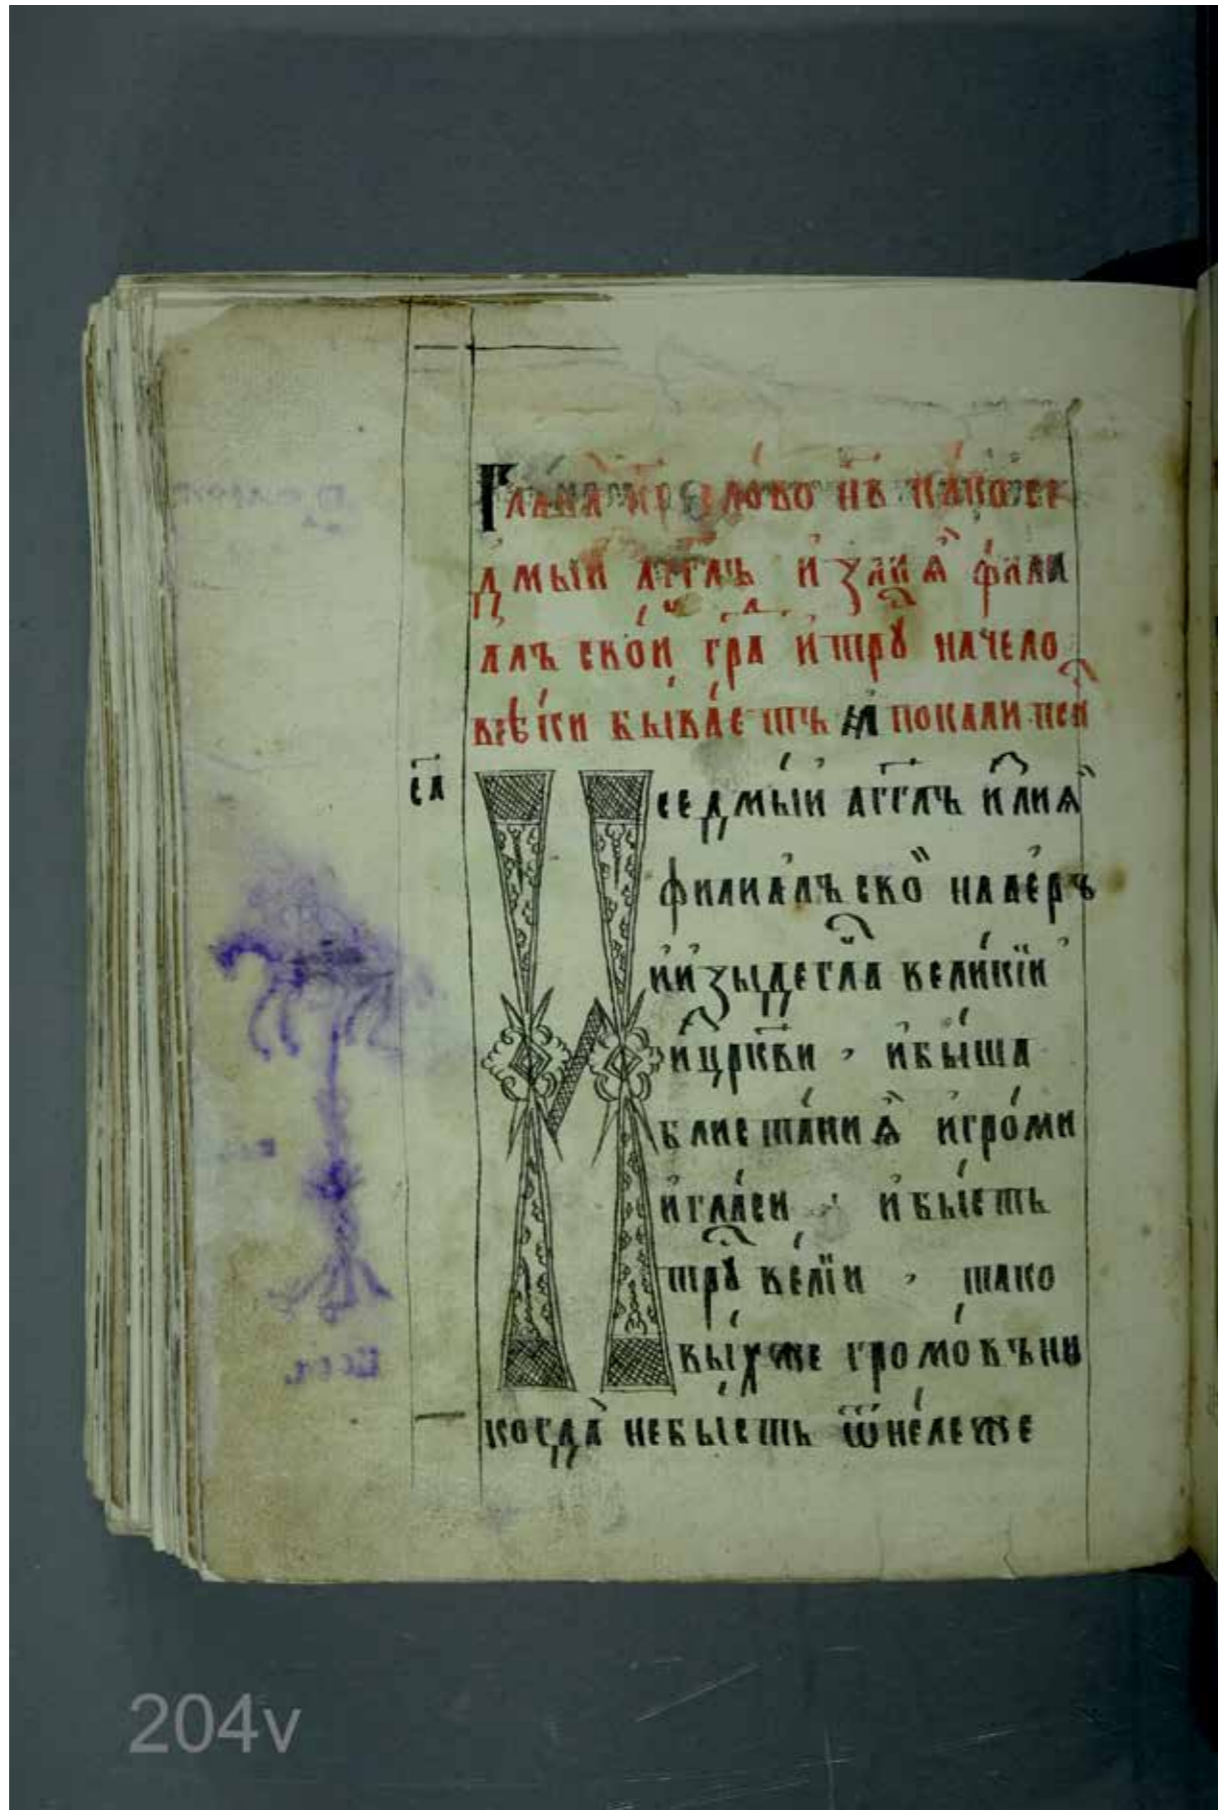 сло́во н҃в ка́ко се
дмы́й а҆́гг҃лъ и҆злиѧ̀ фиѧ́ли
а́лъ скои гра и҆ трꙋ на чело
вѣ́ки быва́етъ а҆покали пси
с҃а седмы́й а҆гг҃лъ и҆злиѧ̀
филиа́лъ ско на ае́ръ
и҆ и҆зыде гла вели́кїи
и҆ цр҃кви , и҆ бы́ша
блиста́ниѧ̀ и҆ гро́ми
и҆ гла́си , и҆ бы́сть
трꙋ ве́лїи , тако
вы́хже громо́въ ни
когда̀ не бы́сть ѿне́леже
204v